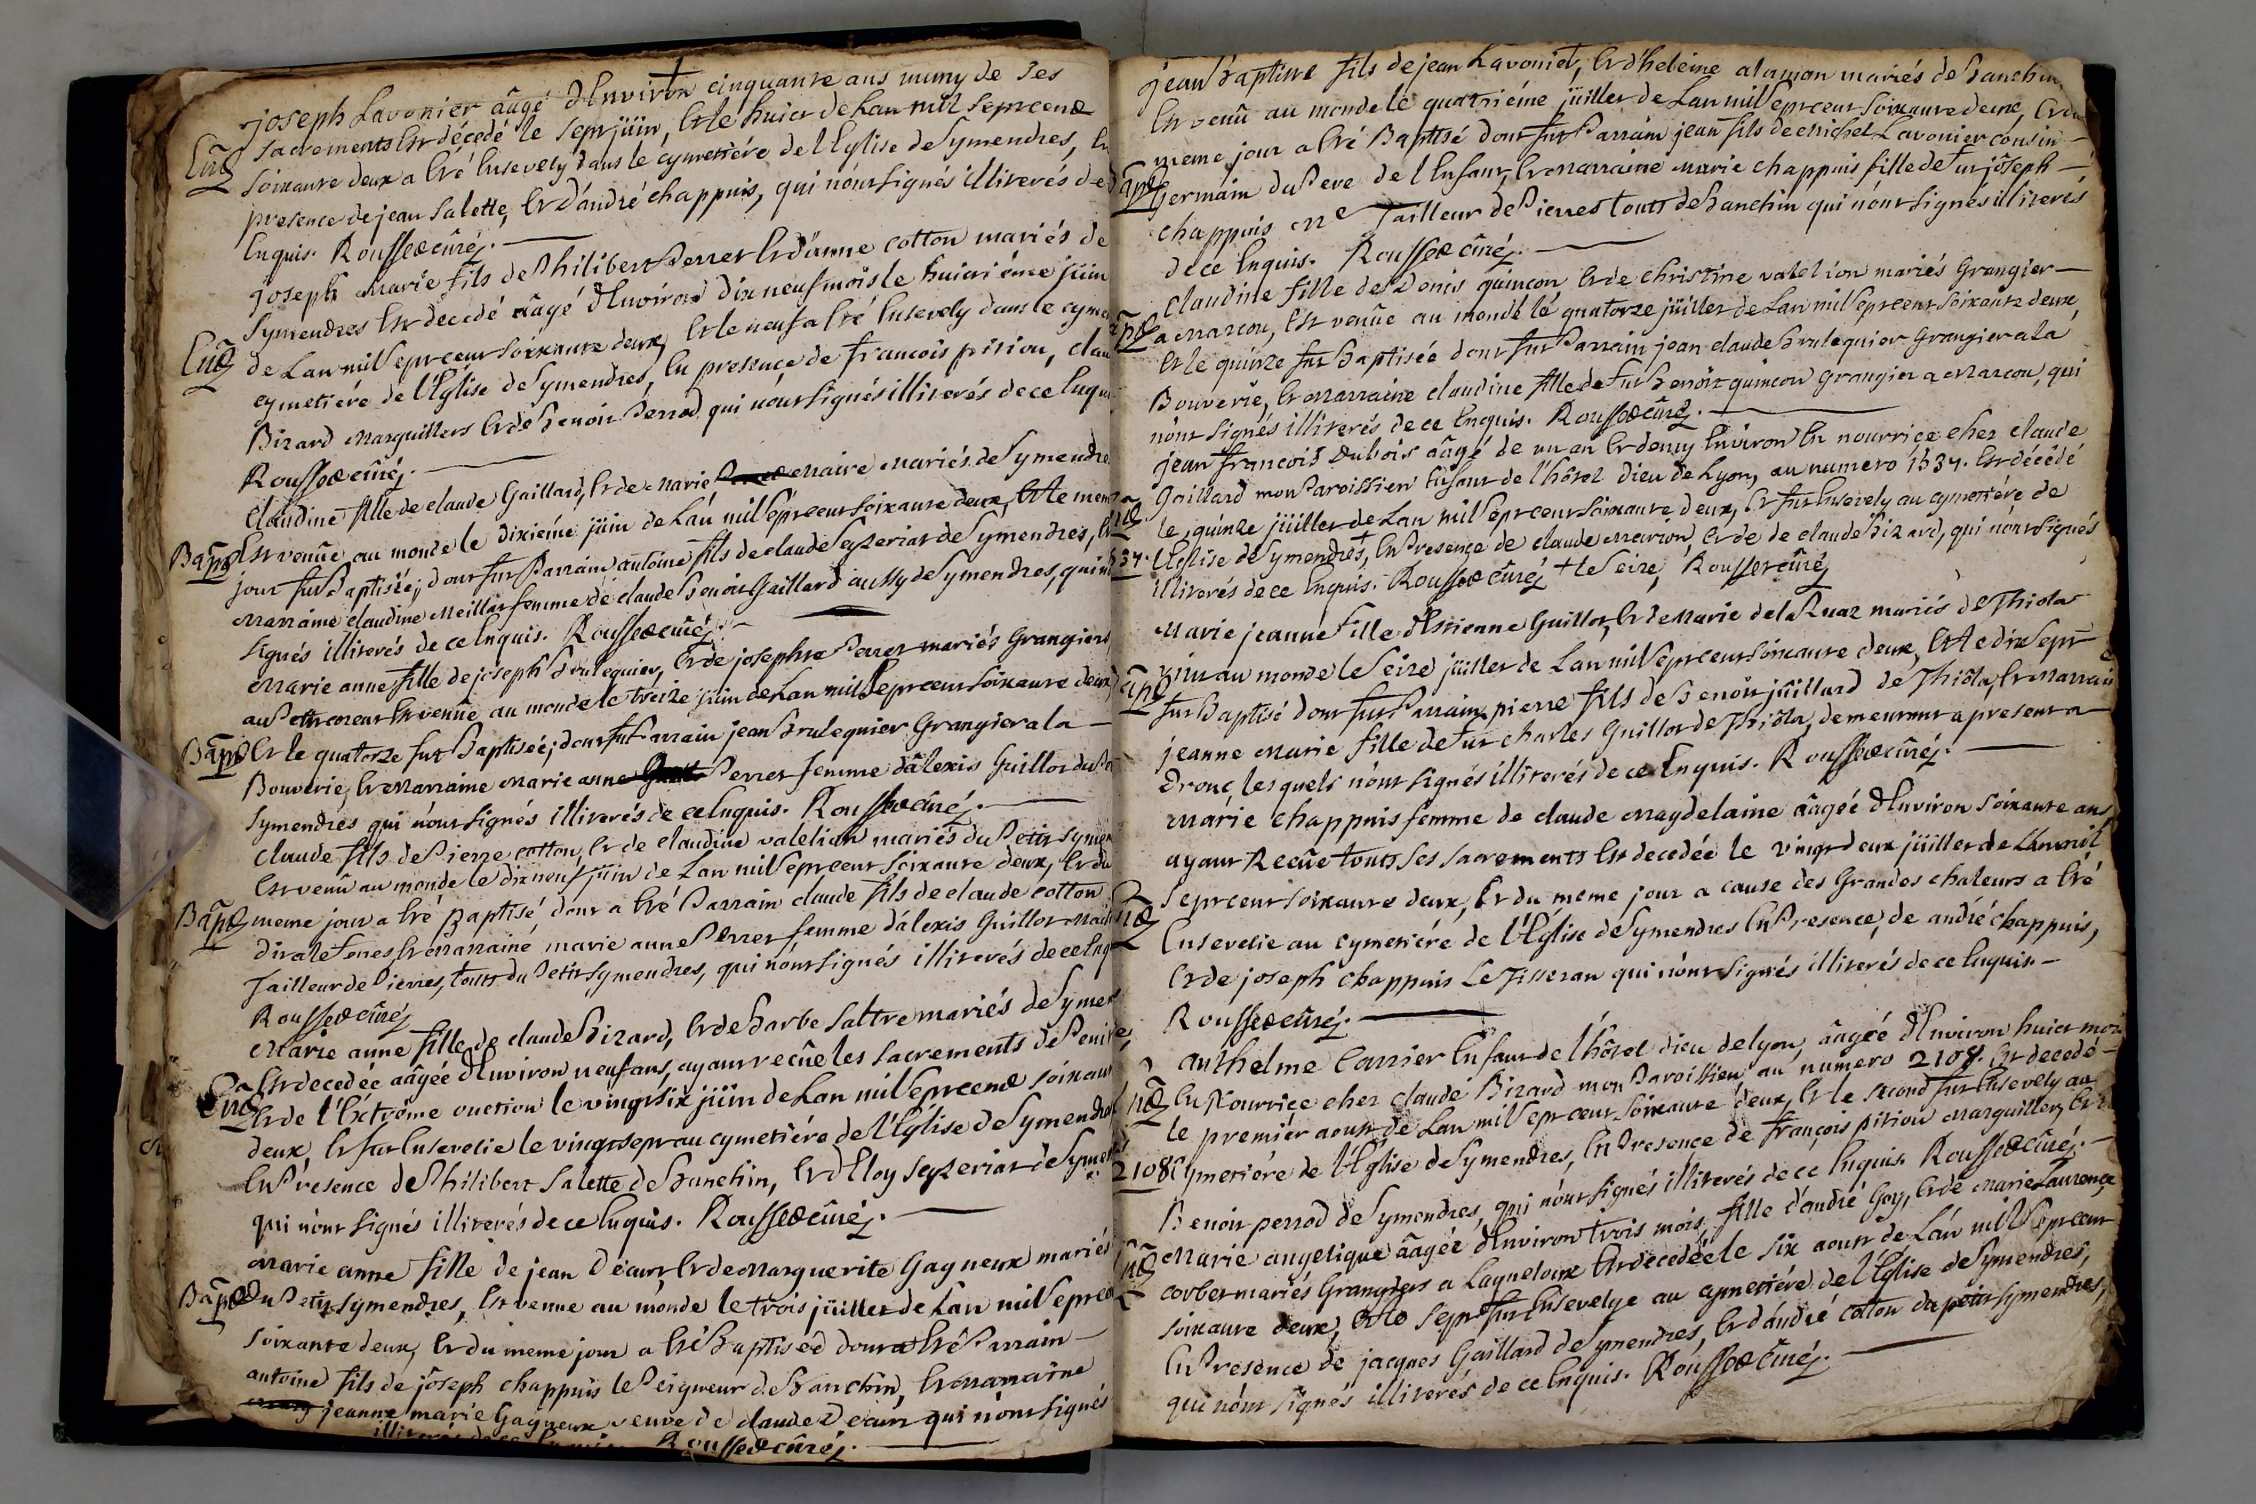 joseph Lavonier aâgé d'Environ cinquante ans muny de ses
Ense sacrements Est décedé le sept jüin, Et le huict de Lan mil septcent
soixante deux a Eté Ensevely dans le cymetiére de l'Eglise de Symendres, En
presence de jean Salette, Et d'andré chappuis, qui n'ont signés illiterés de ce
Enquis. Rousset cûré.
joseph Marie fils de Philibert Perret Et d'anne cotton mariés de
Symendres Est decedé aâgé d'Environ dix neuf mois le huictiéme jüin
Ense de Lan mil septcent soixante deux, Et le neuf a Eté Ensevely dans le
cymetiére de l'Eglise de Symendres, En presence de francois pition, claude
Bizard Marguilliers Et de Benoit Perrod qui n'ont signés illiterés de ce Enquis
Rousset cûré.
Claudine fille de claude Gaillard, Et de Marie Maire Mariés de Symendres
Bapse Est venüe au monde le dixiéme jüin de Lan mil septcent soixante deux, Et le meme
jour fut Baptisée; dont fut Parrain antoine fils de claude Sezeriat de Symendres, Et
Marraine claudine Meillat femme de claude Benoit Gaillard aussy de Symendres, qui n'ont
signés illiterés de ce Enquis. Rousset cûré.
Marie anne fille de joseph Brulequier, Et de josephte Perret mariés Grangiers
au Est venüe au monde le treize juin de Lan mil septcent soixante deux,
Bapse Et le quatorze fut Baptisée; dont fut Parrain jean Brulequier Grangier a la
Bouverie, Et Marraine Marie anne Perret femme d'âlexis Guillot du
Symendres qui n'ont signés illiterés de ce Enquis. Rousset cûré.
Claude fils de Pierre cotton, Et de claudine valelion mariés du Petit Symendres
Est venû au monde le dix neuf jüin de Lan mil septcent soixante deux, Et du
Bapse meme jour a Eté Baptisé, dont a Eté Parrain claude fils de claude cotton
Marraine marie anne Perret femme d'alexis Guillot
Tailleur de Pierres, touts du Petit Symendres, qui n'ont signés illiterés de ce Enquis
Rousset cûré
Marie anne fille de claude Bizard, Et de Barbe Saltre mariés de Symendres
Est decedée aâgée d'Environ neuf ans, ayant recûe les sacrements de Penitence,
Ense Et de l'Extréme onction le vingt six jüin de Lan mil septcent soixante
deux, Et fut Ensevelie le vingt sept au cymetiére de l'Eglise de Symendres
En Presence de Philibert Salette de Banchin, Et d'Eloy Sezeriat de Symendres
qui n'ont signés illiterés de ce Enquis. Rousset cûré.
Marie anne fille de jean Decurt Et de Marguerite Gagneux mariés
Bapse du Petit Symendres, Est venue au monde le trois jüillet de Lan mil septcent
soixante deux, Et du meme jour a Eté Baptisée dont a Eté Parrain
antoine fils de joseph chappuis le Peigneur de Banchin, Et marraine
jeanne marie Gagneux veuve de claude Decurt qui n'ont signés
illiterés de ce Enquis. Rousset cûré.
jean Baptiste fils de jean Lavonier, Et d'heleine alamon mariés de Banchin
Est venû au monde le quatriéme jüillet de Lan mil septcent soixante deux, Et du
meme jour a Eté Baptisé dont fut Parrain jean fils de Michel Lavonier cousin
Bapse Germain du Pere de l'Enfant, Et Marraine Marie chappuis fille de fut joseph
chappuis Me Tailleur de Pierres touts de Banchin qui n'ont signés illiterés
de ce Enquis. Rousset cûré.
claudine fille de Denis quincon Et de christine valelion mariés Grangier
Bapse a Marcou, Est venüe au monde le quatorze jüillet de Lan mil septcent soixante deux,
Et le quinze fut Baptisée dont fut Parrain jean claude Brulequier Grangier a la
Bouverie, Et Marraine claudine fille de fut Benoit quincon Grangier a Marcou, qui
n'ont signés illiterés de ce Enquis. Rousset cûré.
jean francois Dubois aâgé de un an Et demy Environ En nourrice chez claude
Gaillard mon Paroissien Enfant de l'hôtel Dieu de Lyon, au numero 1534. Est décédé
Ense le quinze jüillet de Lan mil septcent soixante deux, Et fut Ensevely au cymetiére de
1534. L'Eglise de Symendres, En Presence de claude Marion, Et de claude Bizard, qui n'ont signés
illiterés de ce Enquis. Rousset cûré + le seize, Rousset cûré
Marie jeanne fille d'Estienne Guillot, Et de Marie de la Ruaz mariés de Thiola
vint au monde le seize jüillet de Lan mil septcent soixante deux, Et le dix sept
Bapse fut Baptisé dont fut Parrain pierre fils de Benoit jüillard de Thiola, Et Marraine
jeanne Marie fille de fut charles Guillot de Thiola, demeurant a present a
Drouc, lesquels n'ont signés illiterés de ce Enquis. Rousset cûré.
Marie chappuis femme de claude Magdelaine aâgée d'Environ soixante ans
ayant Recûe touts ses sacrements Est decedée le vingt deux jüillet de Lan mil
septcent soixante deux, Et du meme jour a cause des Grandes chaleurs a Eté
Ense Ensevelie au cymetiére de l'Eglise de Symendres En Presence, de andré chappuis,
Et de joseph chappuis Le Tisseran qui n'ont signés illiterés de ce Enquis
Rousset cûré.
anthelme Carrier Enfant de l'hôtel dieu de lyon, aâgéé d'Environ huict mois
Ense En Nourrice chez claude Bizard mon Paroissien, au numero 2108. Est decedé
le premier aoust de Lan mil septcent soixante deux, Et le second fut Ensevely au
2108 Cymetiére de l'Eglise de Symendres, En Presence de françois pition Marguillier, Et de
Benoit perrod de Symendres, qui n'ont signés illiterés de ce Enquis. Rousset cûré.
Ense Marie angelique aâgée d'Environ trois mois, fille d'andré Goy, Et de Marie Laurence
corbet mariés Grangiers a Lagneloux Est decedée le six aoust de Lan mil septcent
soixante deux, Et le sept fut Ensevelye au cymetiére de l'Eglise de Symendres,
En Presence de jacques Gaillard de Symendres, Et d'andré cotton du petit Symendres,
qui n'ont signés illiterés de ce Enquis. Rousset cûré.